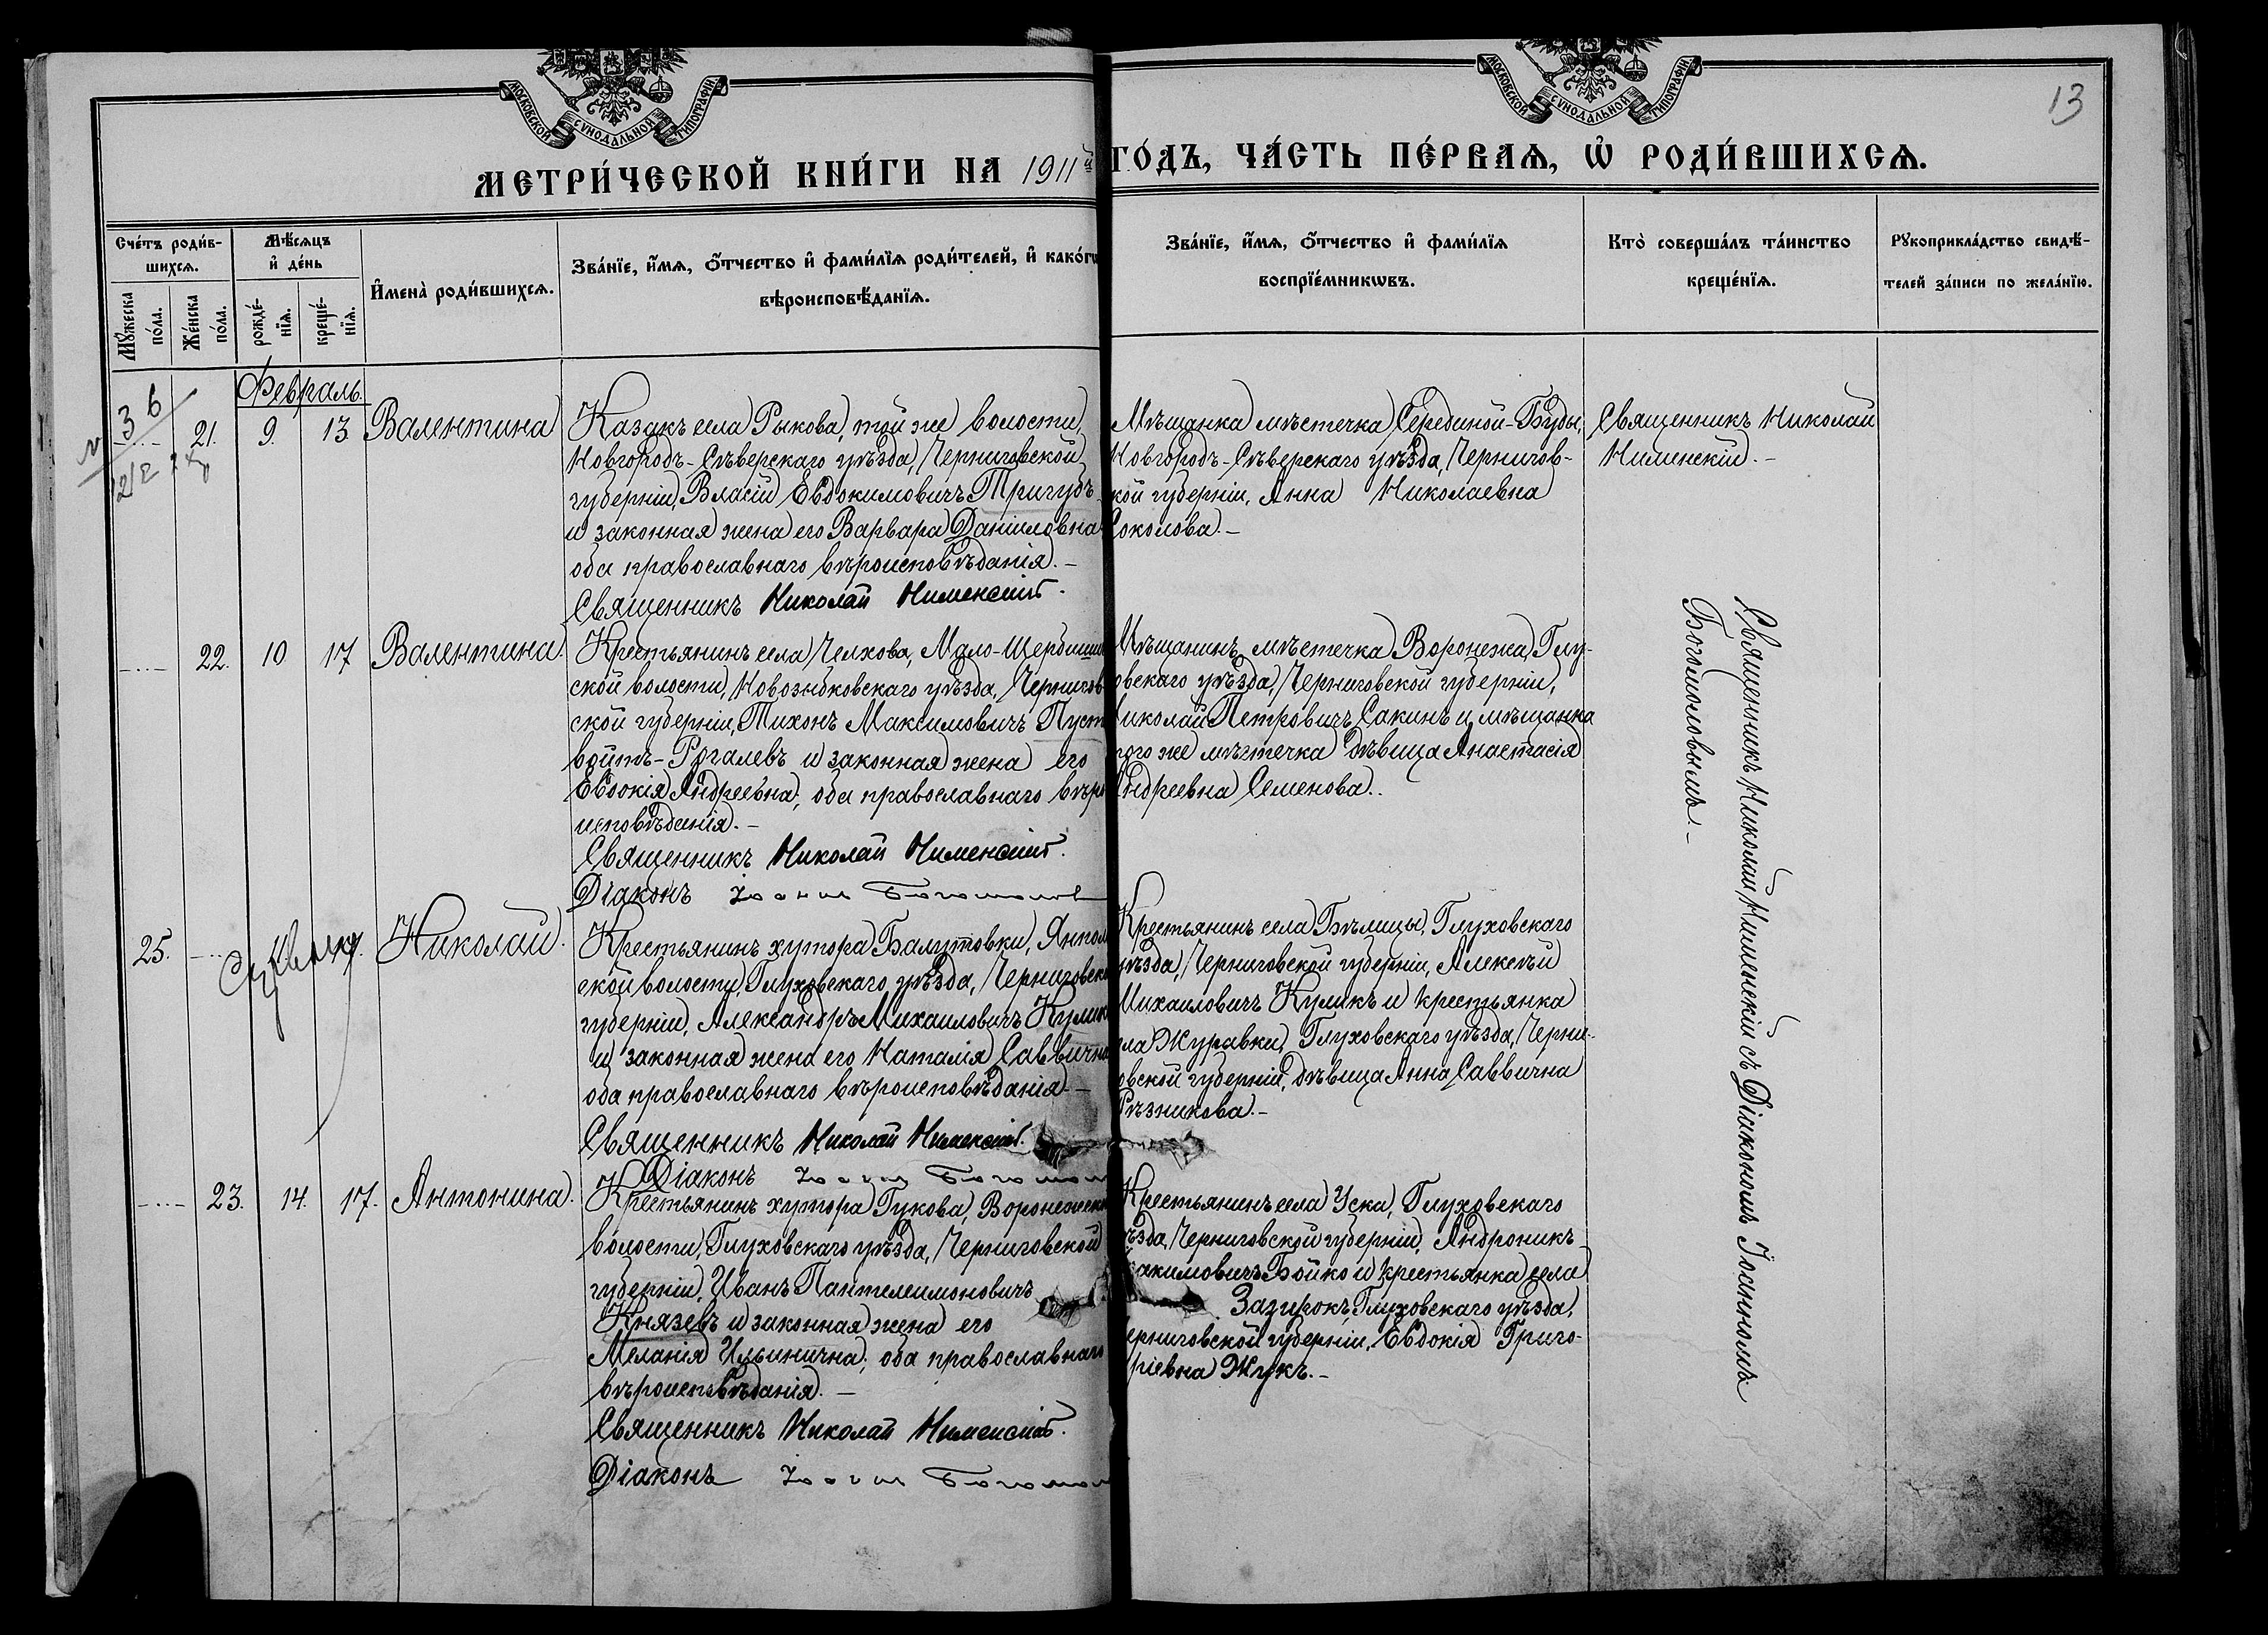 МОСКОВСКОЙ СУНОДАЛЬНОЙ ТИПОГРАФІИ
МОСКОВСКОЙ СУНОДАЛЬНОЙ ТИПОГРАФІИ
13
МЕТРИ́ЧЕСКОЙ КНИ́ГИ НА 1911й ГО́ДЪ, ЧА́СТЬ ПЕ́РВАѦ, Ѡ҆ РОДИ́ВШИХСѦ.
Сче́тъ роди́в-
шихсѧ.
Мꙋ́жеска по́ла.
Же́нска по́ла.
Мѣ́сѧцъ
и҆ де́нь
рожде́-
нїѧ.
креще́-
нїѧ.
И҆мена̀ роди́вшихсѧ.
Зва́нїе, и҆́мѧ, ѻ҆́тчество и҆ фами́лїѧ роди́телей, и҆ како́гѡ
вѣроисповѣ́данїѧ.
Зва́нїе, и҆́мѧ, ѻ҆́тчество и҆ фами́лїѧ
воспрїе́мникѡвъ.
Кто̀ соверша́лъ та́инство
креще́нїѧ.
Рꙋкоприкла́дство свидѣ́-
телей за́писи по жела́нїю.
Февраль.
36
21. 9. 13. Валентина
Казакъ села Рыкова, той же волости,
Новгородъ-Сѣверскаго уѣзда, Черниговской
губерніи, Власій Евдокимовичъ Тригубъ
и законная жена его Варвара Даніиловна
оба православнаго вѣроисповѣданія.-
Священникъ Николай Нименскій.
Мѣщанка мѣстечка Серединой-Буды,
Новгородъ-Сѣверскаго уѣзда, Чернигов-
кой губерніи, Анна Николаевна
Соколова.-
Священникъ Николай
Нименскій.-
22. 10 17 Валентина.
Крестьянинъ села Челхова, Мало-Щербинич
ской волости, Новозыбковскаго уѣзда, Чернигов
ской губерніи, Тихонъ Максимовичъ Пуст
войтъ-Рогалевъ и законная жена его
Евдокія Андреевна, оба православнаго вѣро
исповѣданія.-
Священникъ Николай Нименскій.
Діаконъ Іоаннъ Богомолов
Мѣщанинъ мѣстечка Воронежа, Глу-
овскаго уѣзда, Черниговской губерніи,
Николай Петровичъ Сакинъ и мѣщанка
того же мѣстечка дѣвица Анастасія
Андреевна Семенова..
Священникъ Николай Нименскій съ Діакономъ Іоанномъ
Богомоловымъ.-
25. 17. Николай.
Крестьянинъ хутора Балутовки, Янпол
ской волости, Глуховскаго уѣзда, Черниговско
губерніи, Александръ Михаиловичъ Кулик
и законная жена его Наталія Саввична
оба православнаго вѣроисповѣданія.-
Священникъ Николай Нименскій.
Діаконъ Іоаннъ Богомол
Крестьянинъ села Бѣлицы, Глуховскаго
уѣзда, Черниговской губерніи, Алексѣй
Михаиловичъ Куликъ и крестьянка
ела Журавки, Глуховскаго уѣзда, Черни-
овской губерніи, дѣвица Анна Саввична
Рѣзникова.-
23. 14. 17. Антонина.
Крестьянинъ хутора Гукова, Воронежск
волости, Глуховскаго уѣзда, Черниговской
губерніи, Иванъ Пантелеимоновичъ
Князевъ и законная жена его
Меланія Ильинична; оба православнаго
вѣроисповѣданія.-
Священникъ Николай Нименскій.
Діаконъ Іоаннъ Богомол
Крестьянинъ села Уска, Глуховскаго
ѣзда, Черниговской губерніи, Андроникъ
акимовичъ Бойко и крестьянка села
Зазирокъ, Глуховскаго уѣзда,
ерниговской губерніи, Евдокія Григо-
ріевна Жукъ.-